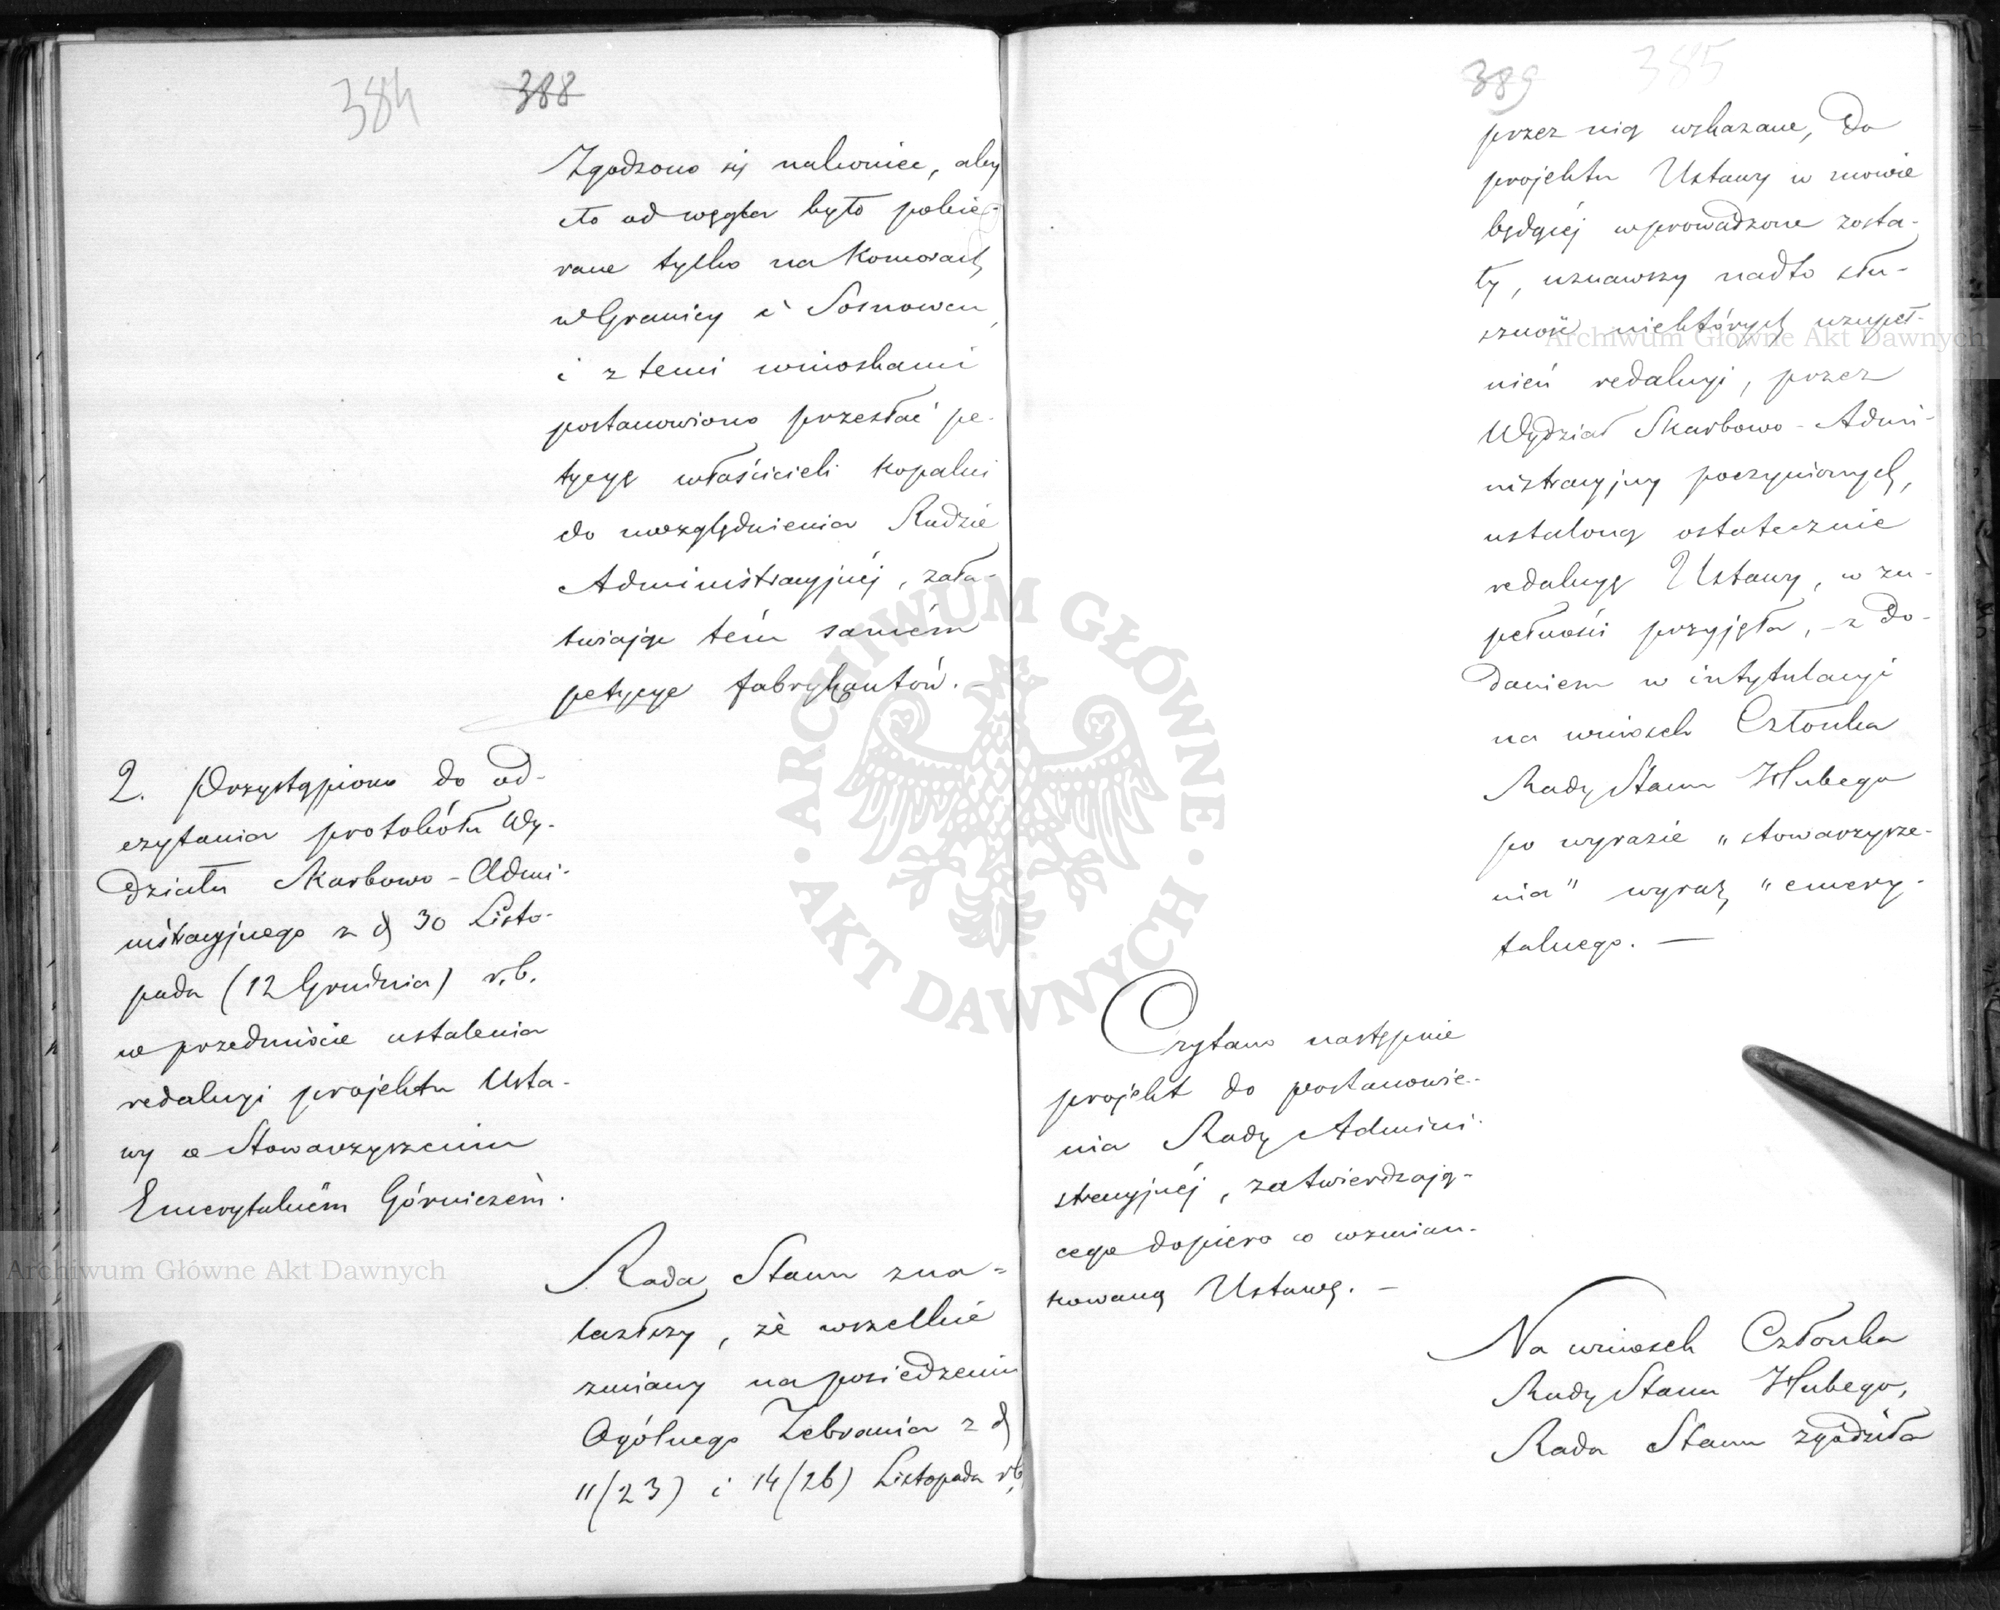 384
388
Zgodzono się nakoniec, aby
cło od węgla było pobie-
rane tylko na Komorach
w Granicy i Sosnowcu,
i z temi wnioskami
postanowiono przesłać pe-
tycyę właścicieli kopalni
do uwzględnienia Radzie
Administracyjnéj, zała-
twiając tém samém
petycye fabrykantów. –
2. Przystąpiono do od-
czytania protokółu Wy-
działu Skarbowo-Admi-
nistracyjnego z d 30 Listo-
pada (12 Grudnia) r.b.
w przedmiocie ustalenia
redakcyi projektu Usta-
wy o Stowarzyszeniu
Emerytalném Górniczém.
Rada Stanu zna-
lazłszy, że wszelkie
zmiany na posiedzeniu
Ogólnego Zebrania z d
11/23) i 14/26) Listopada r.b.
389
385
przez nią wskazane, do
projektu Ustawy w mowie
będącéj wprowadzone zosta-
ły, uznawszy nadto słu-
szność niektórych uzupeł-
nień redakcyi, przez
Wydział Skarbowo-Admi-
nistracyjny poczynionych,
ustaloną ostatecznie
redakcyę Ustawy, w zu-
pełności przyjęła, – z do-
daniem w intytulacyi
na wniosek Członka
Rady Stanu Hubego
po wyrazie „stowarzysze-
nia" wyrazu „emery-
talnego. –
Czytano następnie
projekt do postanowie-
nia Rady Admini-
stracyjnéj, zatwierdzają-
cego dopiero co wzmian-
kowaną Ustawę. –
Na wniosek Członka
Rady Stanu Hubego,
Rada Stanu zgodziła
Archiwum Główne Akt Dawnych
Archiwum Główne Akt Dawnych
ARCHIWUM GŁÓWNE
AKT DAWNYCH